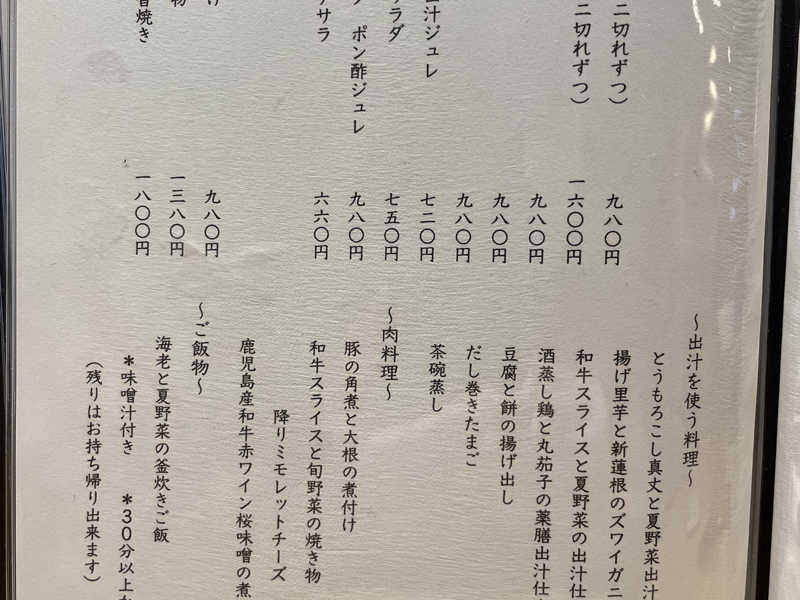 二切れずつ）
九八〇円
二切れずつ）
一六〇〇円
九八〇円
九八〇円
九八〇円
汁ジュレ
七二〇円
ラダ
七五〇円
ポン酢ジュレ
九八〇円
サラ
六六〇円
け
九八〇円
物
一三八〇円
焼き
一八〇〇円
～出汁を使う料理～
とうもろこし真丈と夏野菜出汁
揚げ里芋と新蓮根のズワイガニ
和牛スライスと夏野菜の出汁仕
酒蒸し鶏と丸茄子の薬膳出汁仕
豆腐と餅の揚げ出し
だし巻きたまご
茶碗蒸し
～肉料理～
豚の角煮と大根の煮付け
和牛スライスと旬野菜の焼き物
降りミモレットチーズ
鹿児島産和牛赤ワイン桜味噌の煮
～ご飯物～
海老と夏野菜の釜炊きご飯
＊味噌汁付き ＊30分以上
（残りはお持ち帰り出来ます）